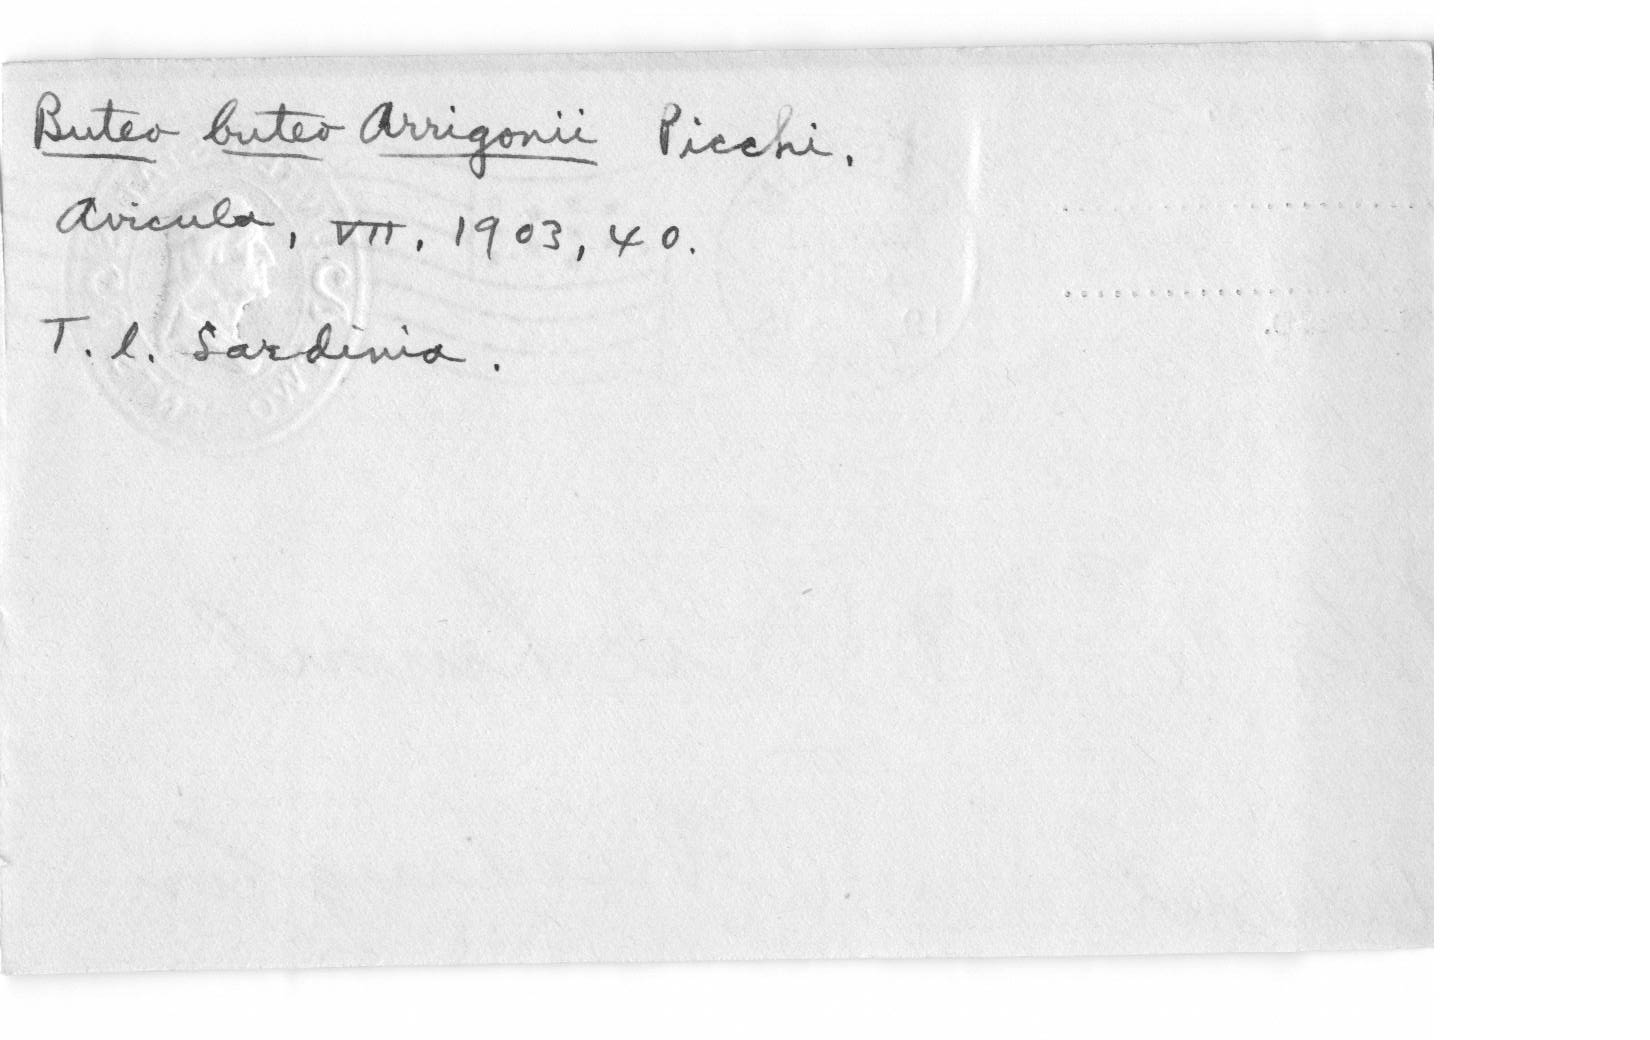 Buteo buteo Arrigonii Picchi.
Avicula, VII, 1903, 40.
T. l. Sardinia.